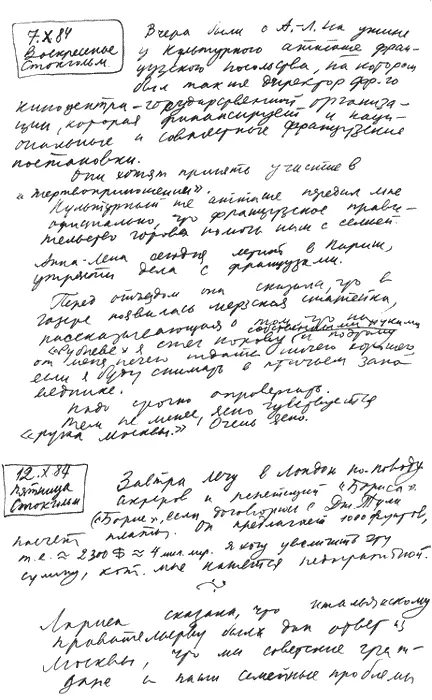 7.X 84
Воскресенье
Стокгольм
Вчера были с А.-Л. на ужине
у культурного атташе фран-
цузского посольства, на котором
был также директор фр-го
киноцентра — государственной организа-
ции, которая финансирует и наци-
ональные и совместные французские
постановки.
Они хотят принять участие в
«Жертвоприношении».
Культурный же атташе передал мне
официально, что французское прави-
тельство готово помочь нам с семьей.
Анна-Лена сегодня летит в Париж,
утрясти дела с французами.
Перед отъездом она сказала, что в
газете появилась мерзкая статейка,
рассказывающая о том, что на
«Рублеве» я сжег корову собственными руками (и поэтому
от меня нечего ждать ничего хорошего
если я буду снимать в птичьем запо-
веднике.
Надо срочно опровергать.
Тем не менее, ясно чувствуется
«рука Москвы.» Очень ясно.
12.X 84
пятница
Стокгольм
Завтра лечу в Лондон по поводу
актеров и репетиций «Бориса»
(«Борис», если договорюсь с Дж. Тули
насчет платы. Он предлагает 1000 фунтов,
т.е. ≈ 2300 $ ≈ 4 мил. лир. Я хочу увеличить эту
сумму, кот. мне кажется недостаточной.
Лариса сказала, что итальянскому
правительству был дан ответ из
Москвы, что мы советские граж-
дане и наши семейные проблемы